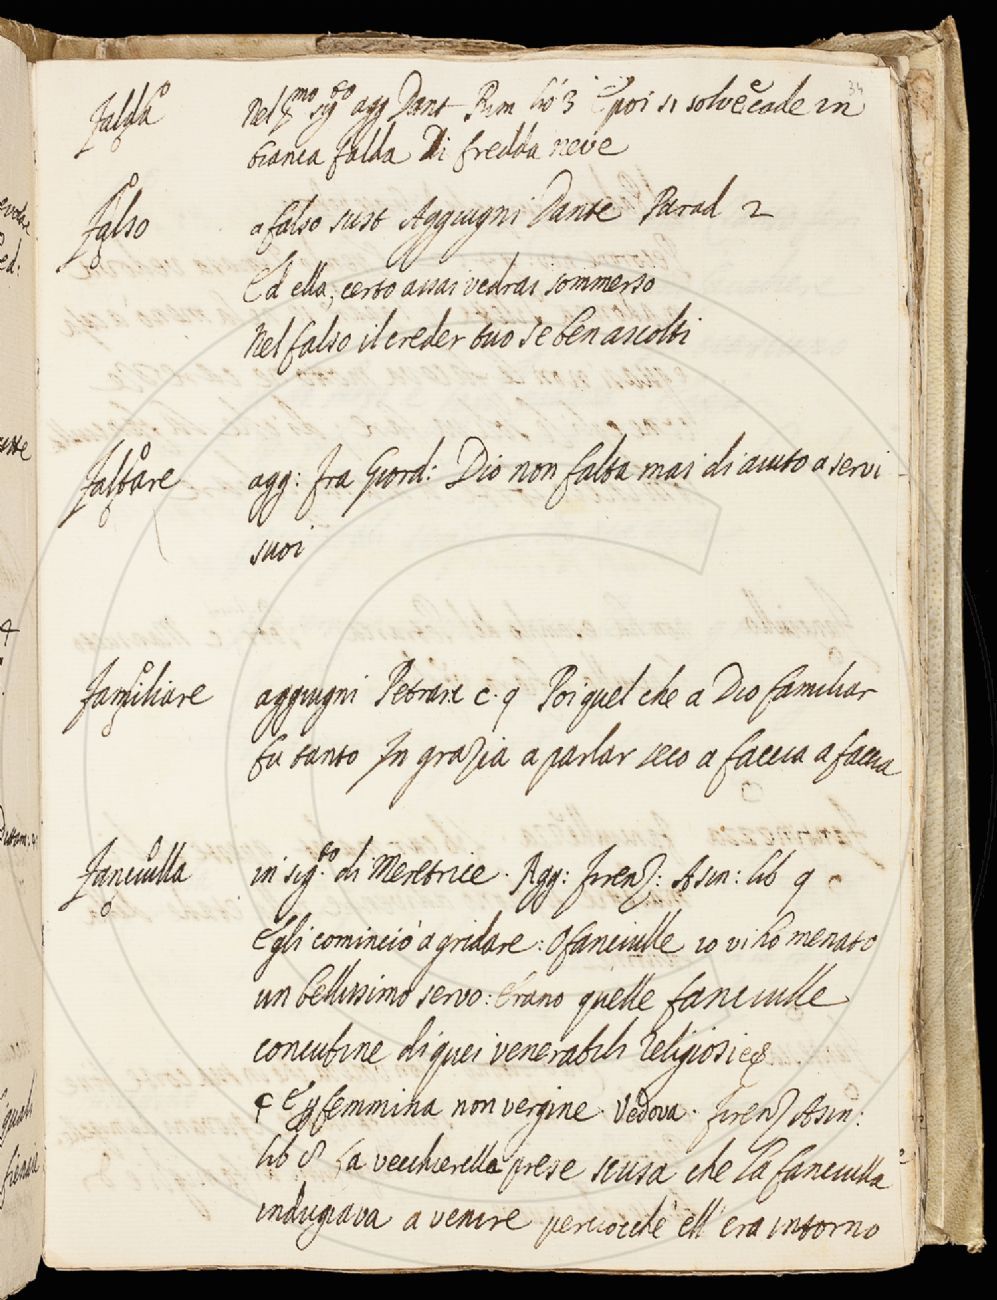 34
Falda Nel pmo sigto agg Dant Rim lib 3 E poi si solve e cade in
bianca falda Di fredda neve
Falso a falso sust Aggiugni Dante Parad 2
Ed ella, certo assai vedrai sommerso
Nel falso il creder tuo se ben ascolti
Faltare agg: fra Giord: Dio non falta mai di aiuto a servi
suoi
Familiare aggiugni Petrarc c. 9 Poi quel che a Dio familiar
fu tanto In grazia a parlar seco a faccia a faccia
Fanciulla in sigto. di Meretrice. Agg: Firenz: Asin: lib 9
Egli cominciò a gridare: O fanciulle io vi ho menato
un bellissimo servo: Erano quelle fanciulle
concubine di quei venerabili religiosi
femmina non vergine. Vedova. Firenz Asin:
lib 8 La vecchierella prese scusa che la fanciulla
indugiava a venire perciocchè ell' era intorno